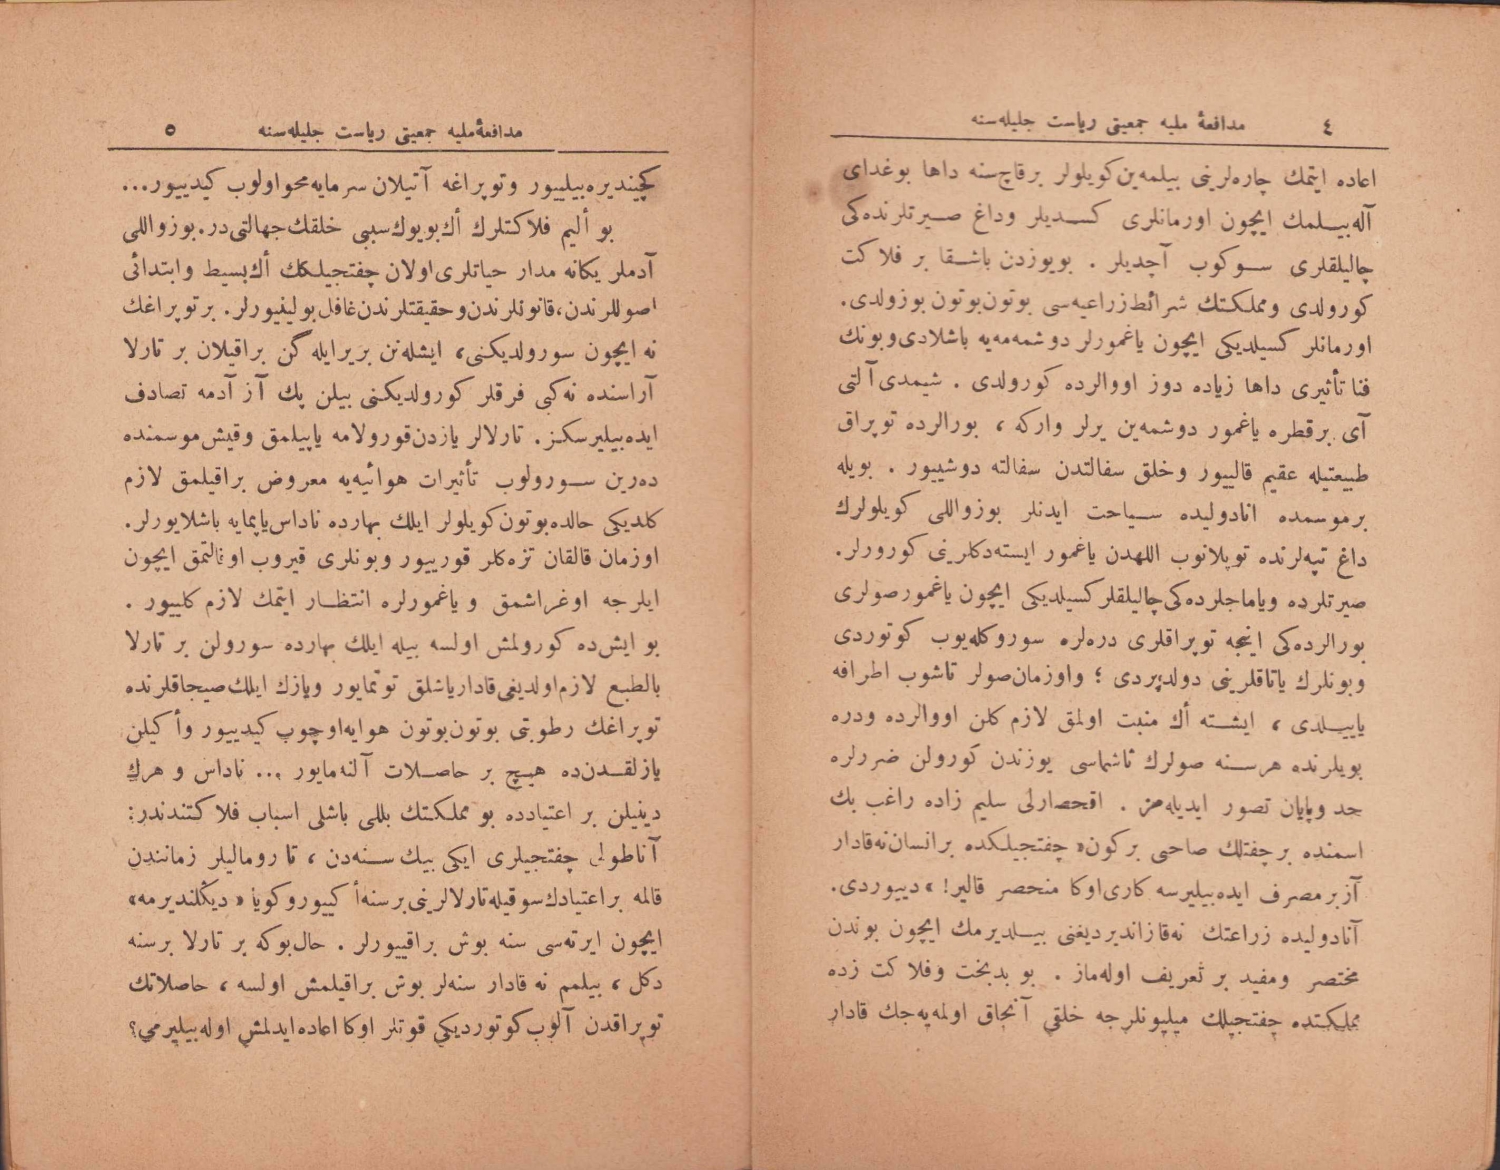 ٤ مدافعهٔ ملیه جمعیتی ریاست جلیله‌سنه
اعاده ایتمك چاره‌لرینی بیلمه‌ین كویلولر برقاچ‌سنه داها بوغدای
آله‌بیلمك ایچون اورمانلری كسدیلر وداغ صیرتلرنده‌كی
چالیلقلری سوكوب آچدیلر . بویوزدن باشقا بر فلاكت
كورولدی ومملكتك شرائط‌زراعیه‌سی بوتون‌بوتون بوزولدی.
اورمانلر كسیلدیكی ایچون یاغمورلر دوشمه‌مه‌یه باشلادی‌وبونك
فنا تأثیری داها زیاده دوز اووالرده كورولدی . شیمدی آلتی
آی برقطره یاغمور دوشمه‌ین یرلر واركه ، بورالرده توپراق
طبیعتیله عقیم قالییور وخلق سفالتدن سفالته دوشییور . بویله
برموسمده انادولیده سیاحت ایدنلر بوزواللی كویلولرك
داغ تپه‌لرنده توپلانوب اللهدن یاغمور ایسته‌دكلرینی كورورلر.
صیرتلرده ویاماجلرده‌كی‌چالیلقلركسیلدیكی ایچون یاغمورصولری
بورالرده‌كی اینجه توپراقلری دره‌لره سوروكله‌یوب كوتوردی
وبونلرك یاتاقلرینی دولدیردی ؛ واوزمان‌صولر تاشوب اطرافه
یاییلدی ، ایشته أك منبت اولمق لازم كلن اووالرده ودره
بویلرنده هرسنه صولرك تاشماسی یوزندن كورولن ضررلره
حد وپایان تصور ایدیله‌مز . اقحصارلی سلیم زاده راغب بك
اسمنده برچفتلك صاحبی بركون« چفتجیلكده برانسان‌نه‌قادار
آزبرمصرف ایده‌بیلیرسه كاری‌اوكا منحصر قالیر! » دییوردی.
آنادولیده زراعتك نه‌قازاندیردیغنی بیلدیرمك ایچون بوندن
مختصر ومفید بر تعریف اوله‌ماز . بو بدبخت وفلاكت زده
مملكتده چفتجیلك میلیونلرجه خلقی آنجاق اولمه‌یه‌جك قادار
مدافعهٔ‌ملیه جمعیتی ریاست جلیله‌سنه ٥
كچیندیره‌بیلییور وتوپراغه آتیلان سرمایه‌محواولوب كیدییور...
بو ألیم فلاكتلرك أك‌بویوك‌سببی خلقك‌جهالتی‌در.بوزواللی
آدملر یكانه مدار حیاتلری‌اولان چفتجیلكك أك‌بسیط وابتدائی
اصوللرندن،قانونلرندن‌وحقیقتلرندن‌غافل‌بولینیورلر. برتوپراغك
نه ایچون سورولدیكنی، ایشله‌نن بریرایله گن براقیلان بر تارلا
آراسنده نه‌كبی فرقلر كورولدیكنی بیلن پك آز آدمه تصادف
ایده‌بیلیرسكز. تارلالر یازدن‌قورولامه یاپیلمق وقیش‌موسمنده
ده‌رین سورولوب تأثیرات هوائیه‌یه معروض براقیلمق لازم
كلدیكی حالده‌بوتون‌كویلولر ایلك بهارده ناداس‌یاپمایه باشلایورلر.
اوزمان قالقان تزه‌كلر قورییور وبونلری قیروب اوفالتمق ایچون
ایلرجه اوغراشمق و یاغمورلره انتظار ایتمك لازم كلییور .
بو ایش‌ده كورولمش اولسه بیله ایلك بهارده سورولن بر تارلا
بالطبع لازم‌اولدیغی‌قادار‌یاشلق توتمایور ویازك ایلك‌صیجاقلرنده
توپراغك رطوبتی بوتون‌بوتون هوایه‌اوچوب كیدییور وأكیلن
یازلقدن‌ده هیچ بر حاصلات آلنه‌مایور ... ناداس و هرك
دینیلن بر اعتیادده بو مملكتك بللی باشلی اسباب فلاكتندندر:
آناطولی چفتجیلری ایكی بیك سنه‌دن ، تا رومالیلر زمانندن
قالمه براعتیادك‌سوقیله‌تارلالرینی‌برسنه‌أكییوروكویا « دیكلندیرمه»
ایچون ایرته‌سی سنه بوش براقییورلر . حال‌بوكه بر تارلا برسنه
دكل ، بیلمم نه قادار سنه‌لر بوش براقیلمش اولسه ، حاصلاتك
توپراقدن آلوب‌كوتوردیكی قوتلر اوكا اعاده‌ایدلمش اوله‌بیلیرمی؟